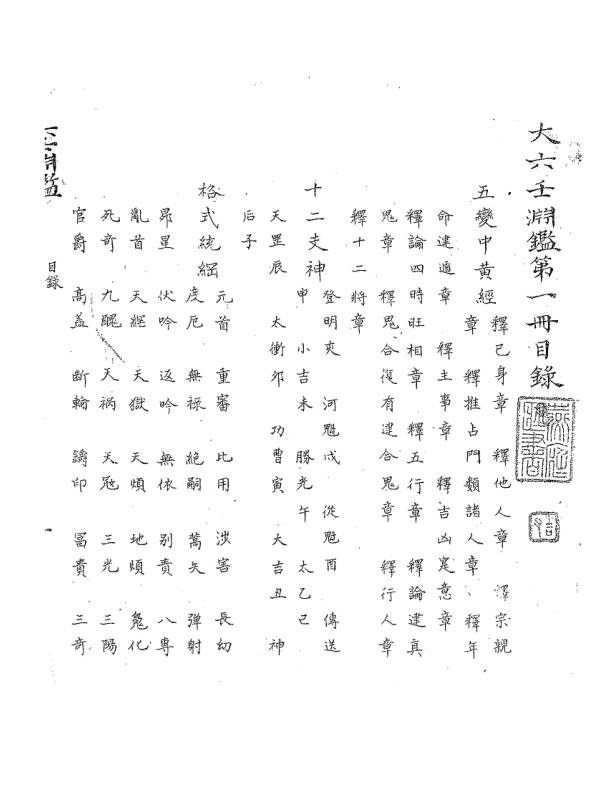 大六壬淵鑑第一冊目錄
五變中黃經 釋己身章 釋他人章 釋宗親
章 釋推占門類諸人章 釋年
命建遁章 釋主事章 釋吉凶寔意章
釋論四時旺相章 釋五行章 釋論建真
鬼章 釋鬼合從有建合鬼章 釋行人章
釋十二將章
十二支神 登明亥 河魁戌 從魁酉 傳送
申 小吉未 勝光午 太乙巳
天罡辰 太衝夘 功曹寅 大吉丑 神
后子
格式統綱 元首 重審 比用 涉害 長幼
度厄 無祿 絕嗣 蒿矢 彈射
昴星 伏吟 返吟 無依 別責 八專
亂首 天獄 天煩 地煩
死奇 九醜 天禍 天寇 三光 三陽
官爵 高蓋 斷輪 鑄印 冨貴 三奇
目錄